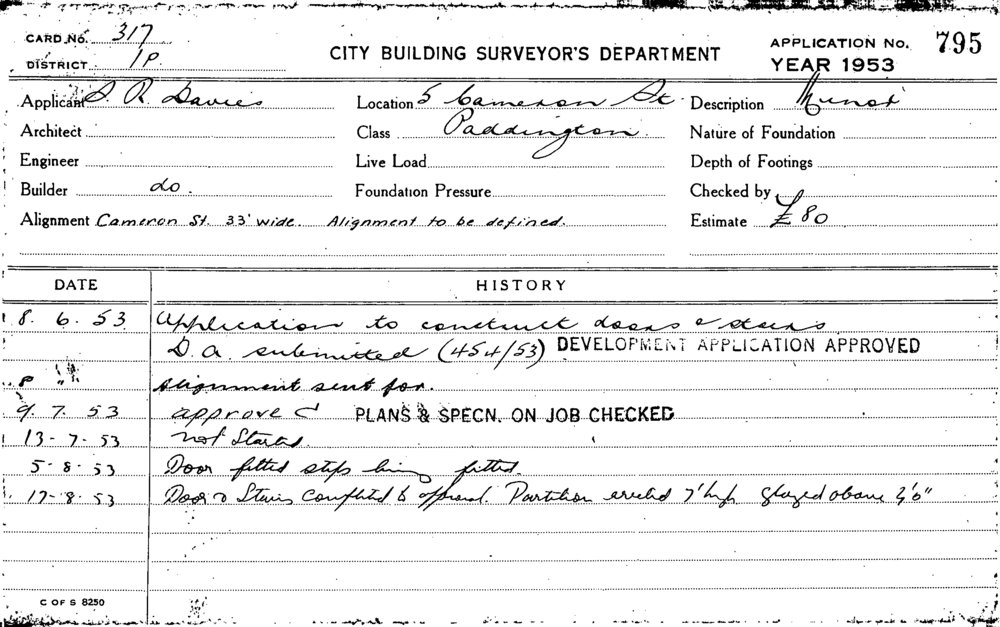 CARD No. 317
DISTRICT 1P
CITY BUILDING SURVEYOR'S DEPARTMENT
APPLICATION No. 795
YEAR 1953
Applicant S. R. Davies Location 5 Cameron St. Description Minor
Architect Class Paddington. Nature of Foundation
Engineer Live Load Depth of Footings
Builder do. Foundation Pressure Checked by
Alignment Cameron St. 33' wide. Alignment to be defined. Estimate £80
DATE HISTORY
8. 6. 53 Application to construct doors & stairs
D.A. submitted (454/53) DEVELOPMENT APPLICATION APPROVED
" " Alignment sent for.
9. 7. 53 approved PLANS & SPECN. ON JOB CHECKED
13-7-53 not Started.
5-8-53 Door fitted steps being fitted.
17-8-53 Door & Stairs Completed to approval. Partition erected 7' high glazed above
C OF S 8250